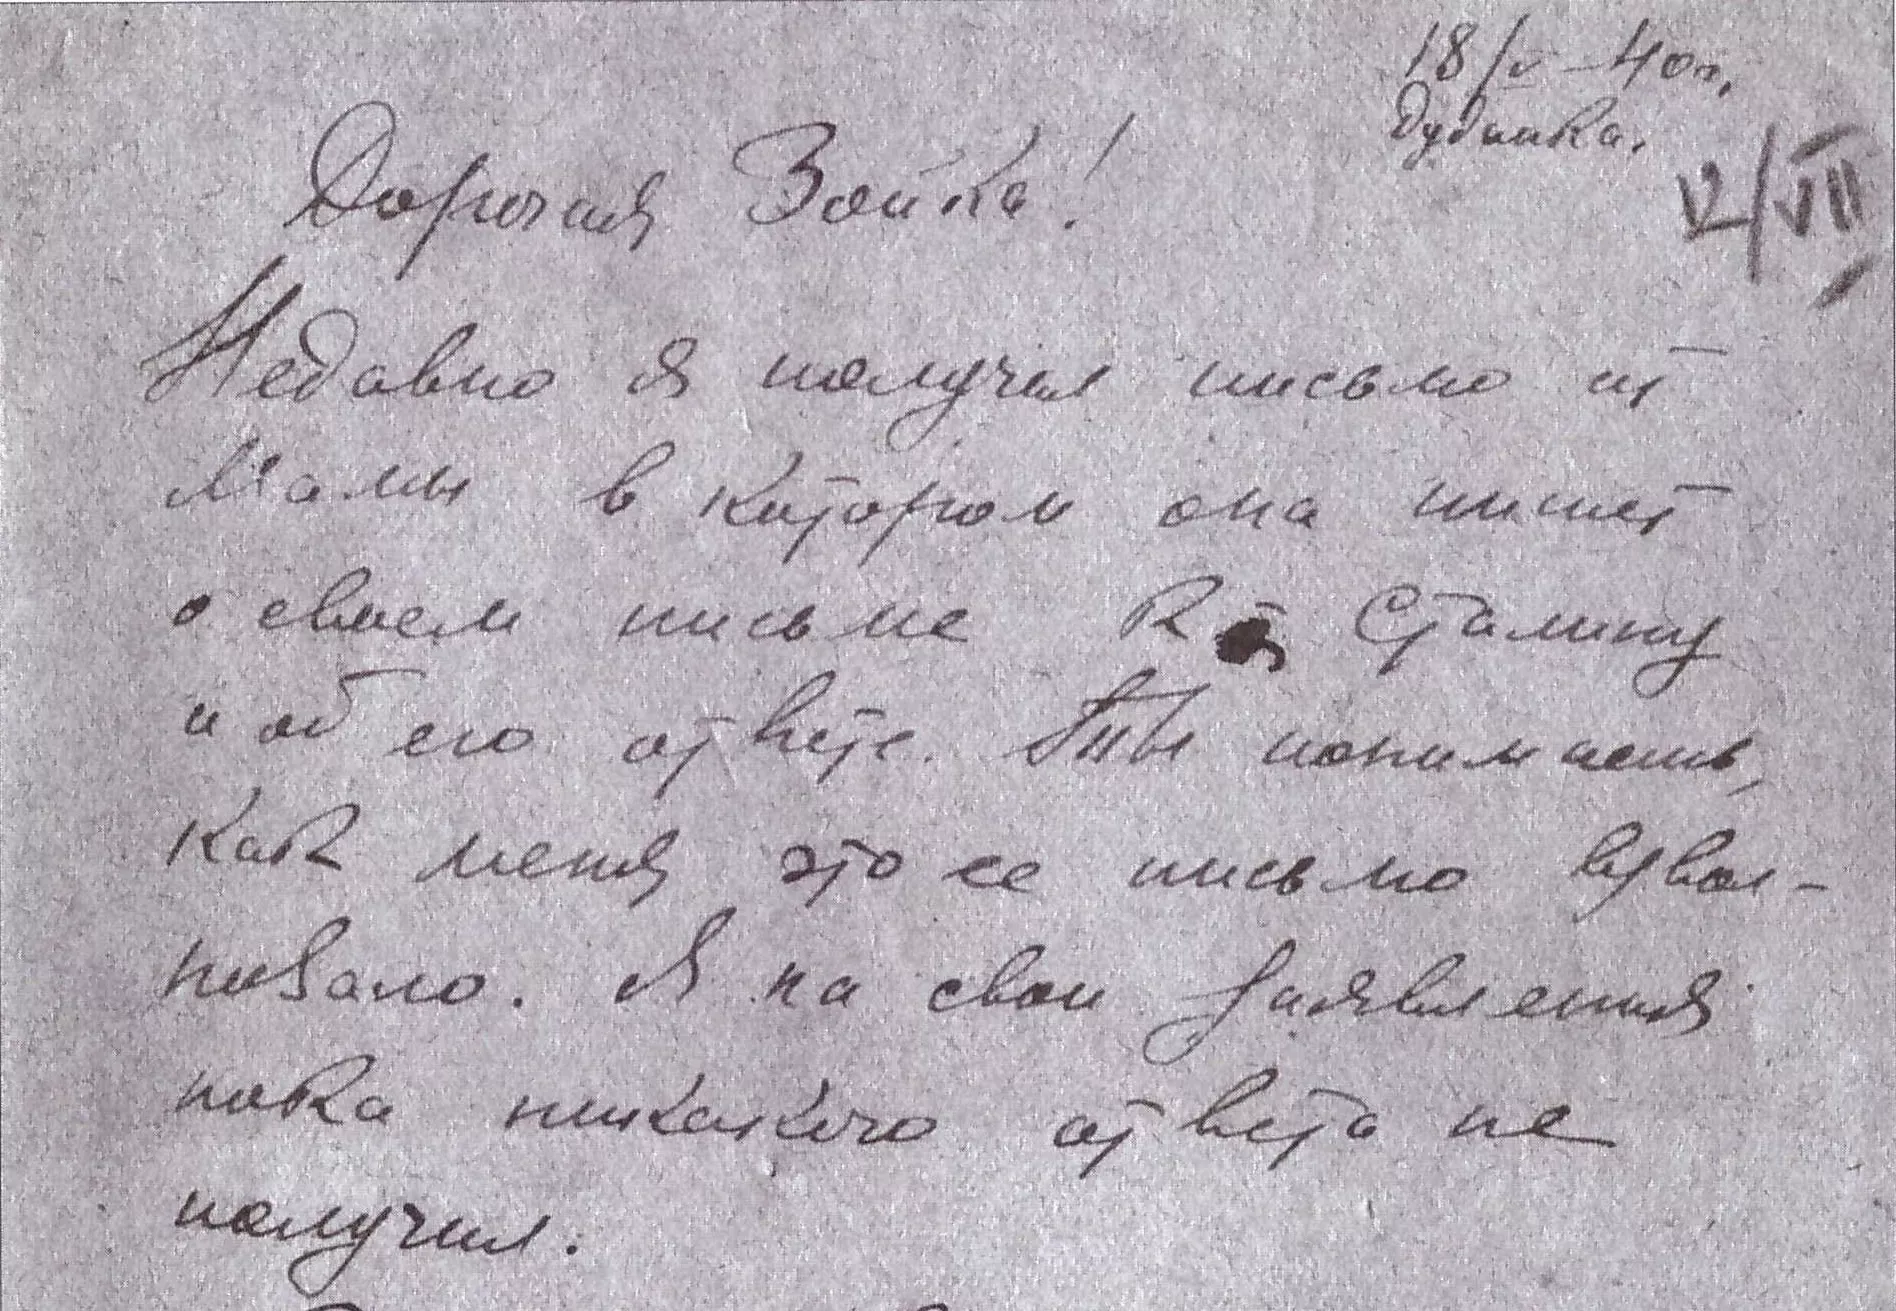 18/V-40г.
Дудинка.
12/VII
Дорогая Зойка!
Недавно я получил письмо от
Мамы в котором она пишет
о своем письме к т. Сталину
и об его ответе. Ты понимаешь,
как меня это ее письмо взвол-
новало. Я на свои заявления
пока никакого ответа не
получил.